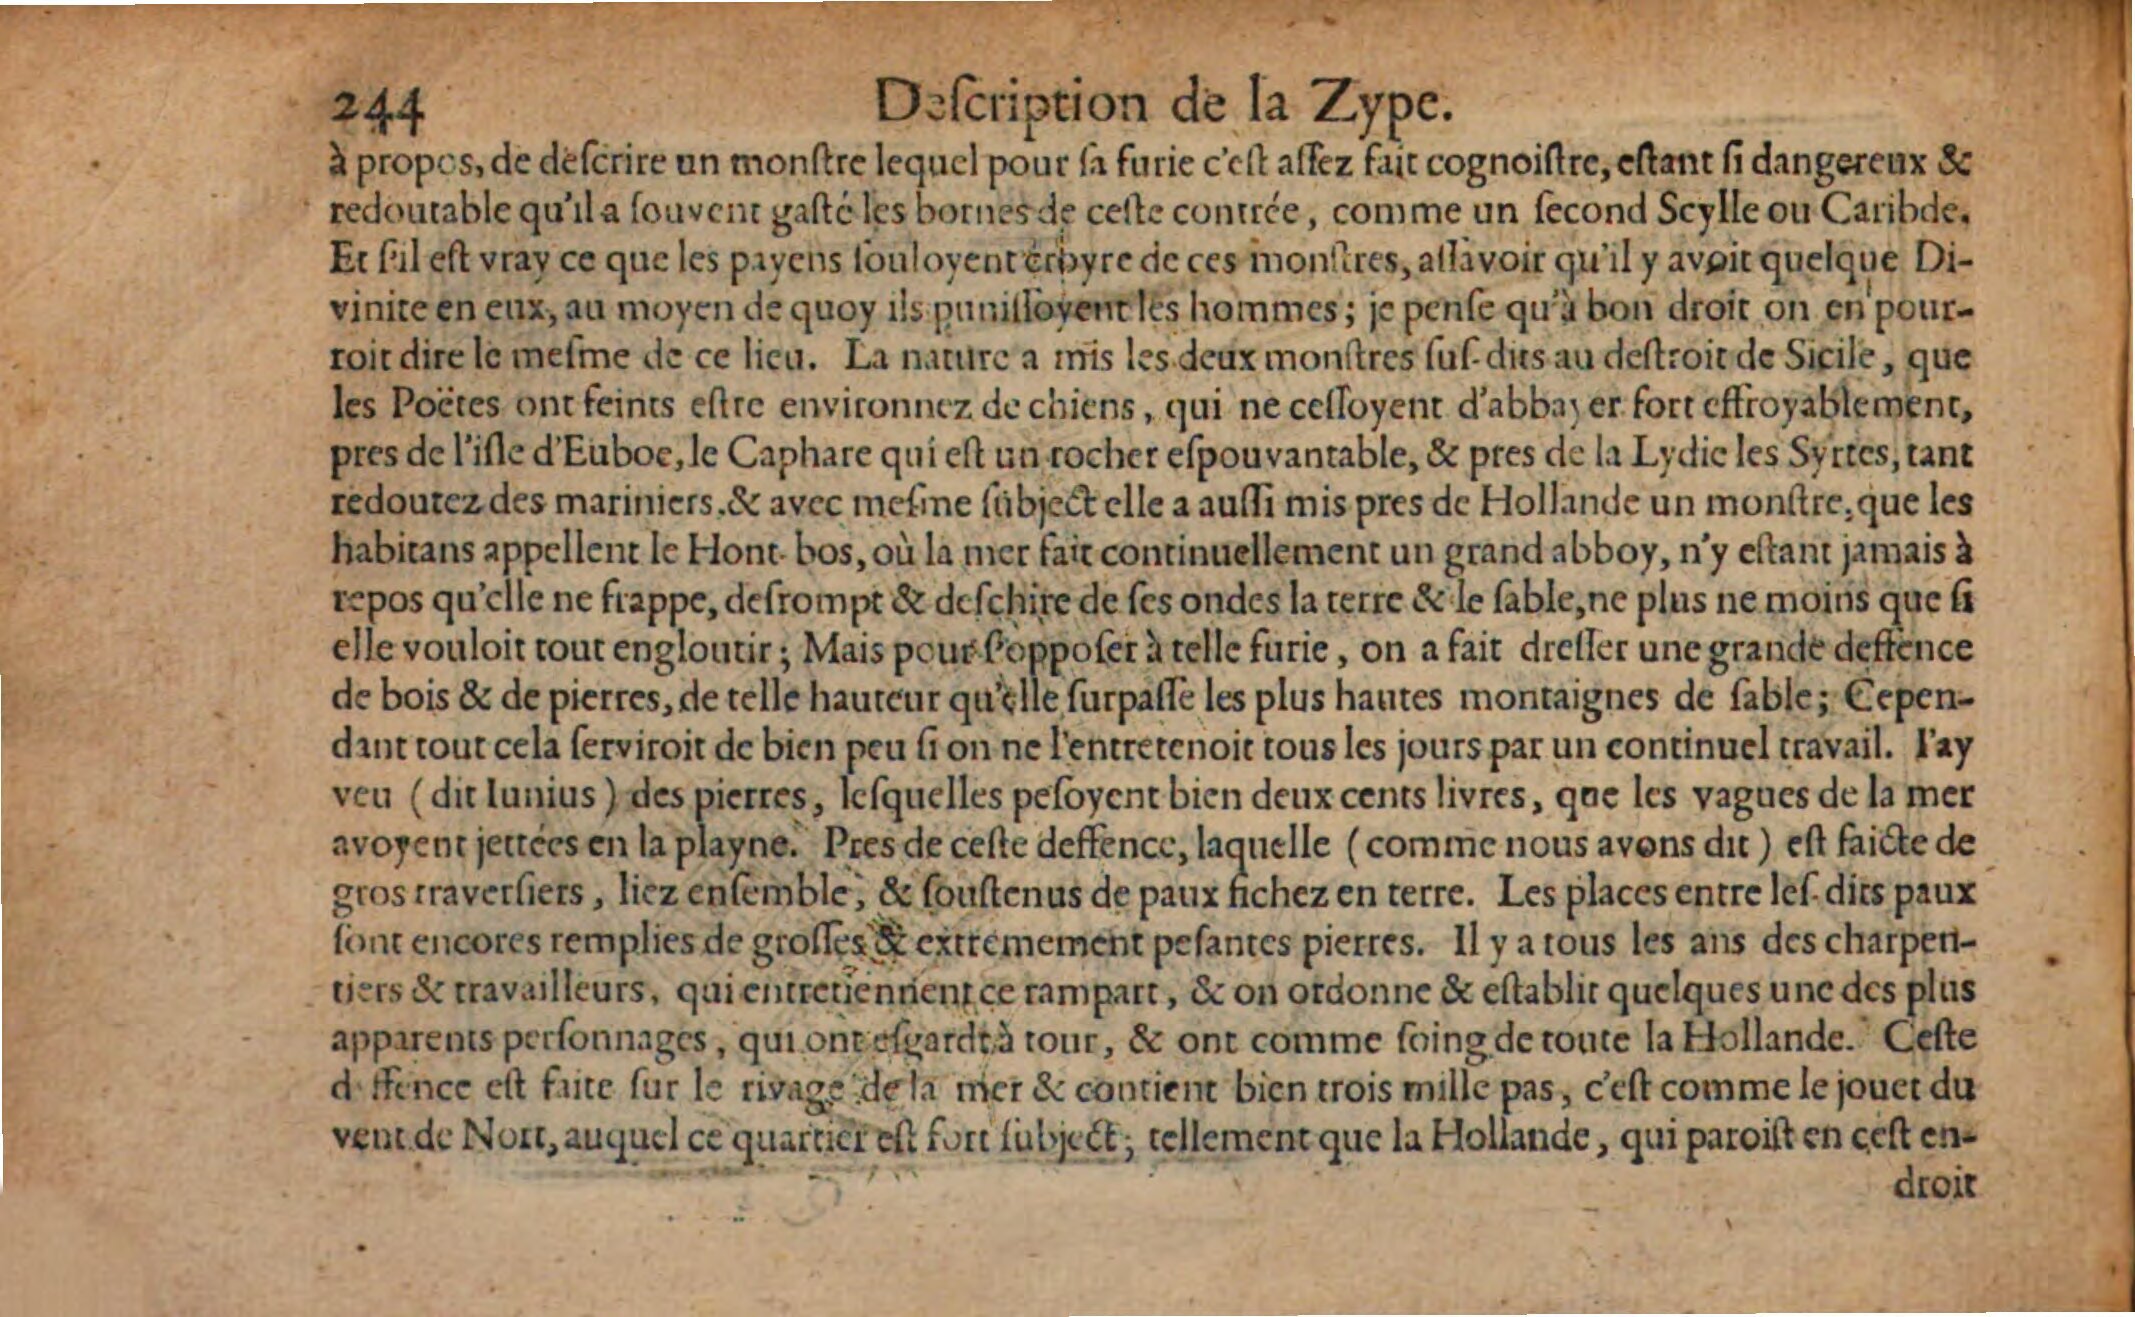 244 Deſcription de la Zype.
à propos, de deſcrire un monſtre lequel pour ſa furie c'eſt aſſez fait cognoiſtre, eſtant ſi dangereux &
redoutable qu'il a ſouvent gaſté les bornes de ceſte contrée, comme un ſecond Scylle ou Caribde.
Et ſ'il eſt vray ce que les payens ſouloyent croyre de ces monſtres, aſſavoir qu'il y avoit quelque Di-
vinite en eux, au moyen de quoy ils puniſſoyent les hommes; je penſe qu'à bon droit on en pour-
roit dire le meſme de ce lieu. La nature a mis les deux monſtres ſuſ-dits au deſtroit de Sicile, que
les Poëtes ont feints eſtre environnez de chiens, qui ne ceſſoyent d'abbayer fort effroyablement,
pres de l'iſle d'Euboe, le Caphare qui eſt un rocher eſpouvantable, & pres de la Lydie les Syrtes, tant
redoutez des mariniers. & avec meſme ſubject elle a auſſi mis pres de Hollande un monſtre, que les
habitans appellent le Hont-bos, où la mer fait continuellement un grand abboy, n'y eſtant jamais à
repos qu'elle ne frappe, deſrompt & deſchire de ſes ondes la terre & le ſable, ne plus ne moins que ſi
elle vouloit tout engloutir; Mais pour ſ'oppoſer à telle furie, on a fait dreſſer une grande deffence
de bois & de pierres, de telle hauteur qu'elle ſurpaſſe les plus hautes montaignes de ſable; Cepen-
dant tout cela ſerviroit de bien peu ſi on ne l'entretenoit tous les jours par un continuel travail. I'ay
veu (dit Iunius) des pierres, leſquelles peſoyent bien deux cents livres, qne les vagues de la mer
avoyent jettées en la playne. Pres de ceſte deffence, laquelle (comme nous avons dit) eſt faicte de
gros traverſiers, liez enſemble, & ſouſtenus de paux fichez en terre. Les places entre leſ-dits paux
ſont encores remplies de groſſes & extremement peſantes pierres. Il y a tous les ans des charpen-
tiers & travailleurs, qui entretiennent ce rampart, & on ordonne & eſtablit quelques une des plus
apparents perſonnages, qui ont eſgardt à tour, & ont comme ſoing de toute la Hollande. Ceſte
d ffence eſt faite ſur le rivage de la mer & contient bien trois mille pas, c'eſt comme le jouet du
vent de Nort, auquel ce quartier eſt fort ſubject; tellement que la Hollande, qui paroiſt en ceſt en-
droit